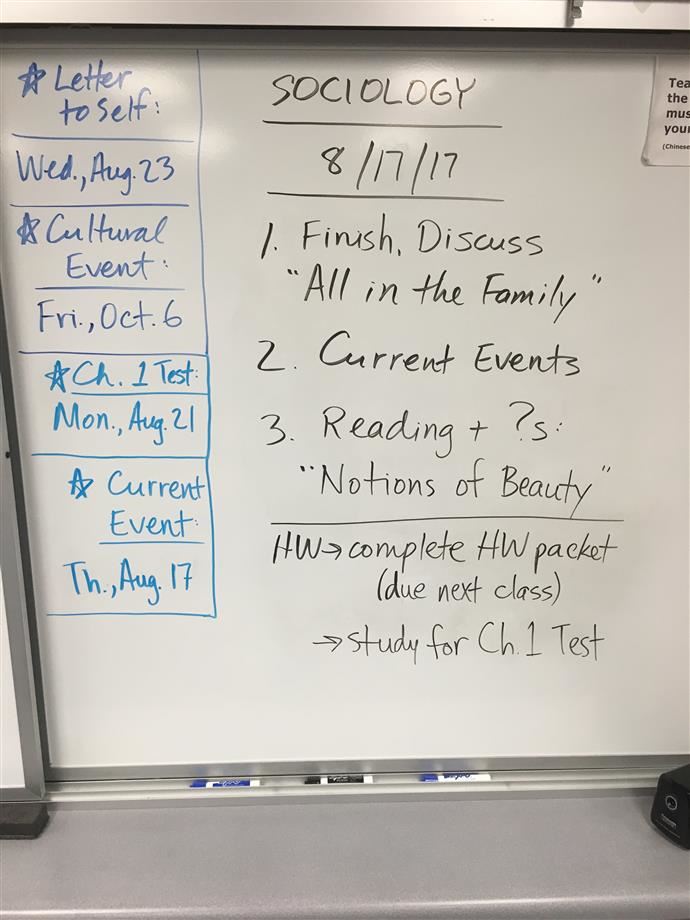 ☆ Letter
to Self:
Wed., Aug. 23
☆ Cultural
Event:
Fri., Oct. 6
☆ Ch. 1 Test:
Mon., Aug. 21
☆ Current
Event:
Th., Aug. 17
SOCIOLOGY
8/17/17
1. Finish, Discuss
"All in the Family"
2. Current Events
3. Reading + ?s:
"Notions of Beauty"
HW → complete HW packet
(due next class)
→ study for Ch. 1 Test
Tea
the
mus
your
(Chinese